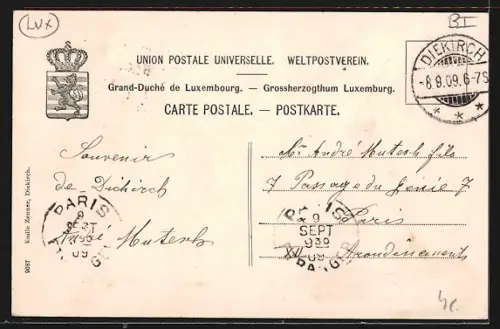 LUX
BI
UNION POSTALE UNIVERSELLE. WELTPOSTVEREIN.
Grand-Duché de Luxembourg. — Grossherzogthum Luxemburg.
CARTE POSTALE. — POSTKARTE.
DIEKIRCH
-8.9.09.6-7S
* * *
Souvenir
de Diekirch
André Mutesh
Mr. André Mutesh fils
7 Passage du Génie 7
Paris
XII Arrondissement
PARIS
9
09
ETRANGER
PARIS
9
SEPT
9 30
09
ETRANGER
9087 Emile Zenner, Diekirch.